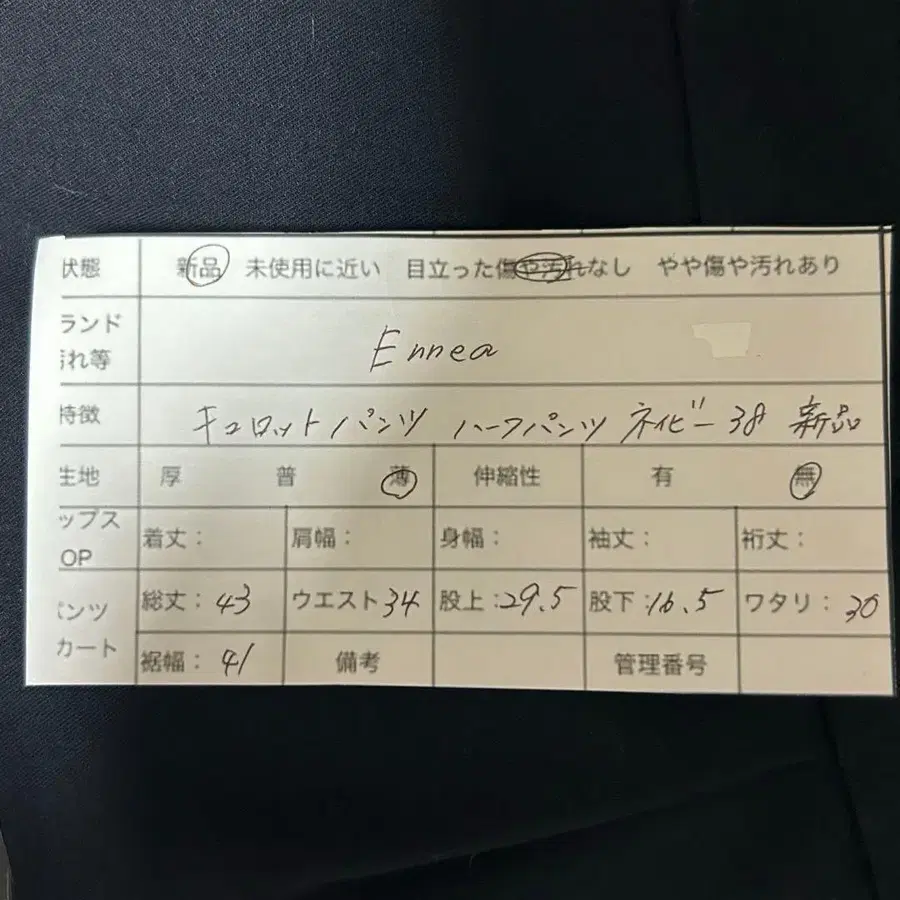 状態 新品 未使用に近い 目立った傷や汚れなし やや傷や汚れあり
ランド
汚れ等 Ennea
特徴 キュロットパンツ ハーフパンツ ネイビー 38 新品
生地 厚 普 薄 伸縮性 有 無
ップス
OP 着丈: 肩幅: 身幅: 袖丈: 裄丈:
パンツ 総丈: 43 ウエスト 34 股上: 29.5 股下: 16.5 ワタリ: 30
カート 裾幅: 41 備考 管理番号